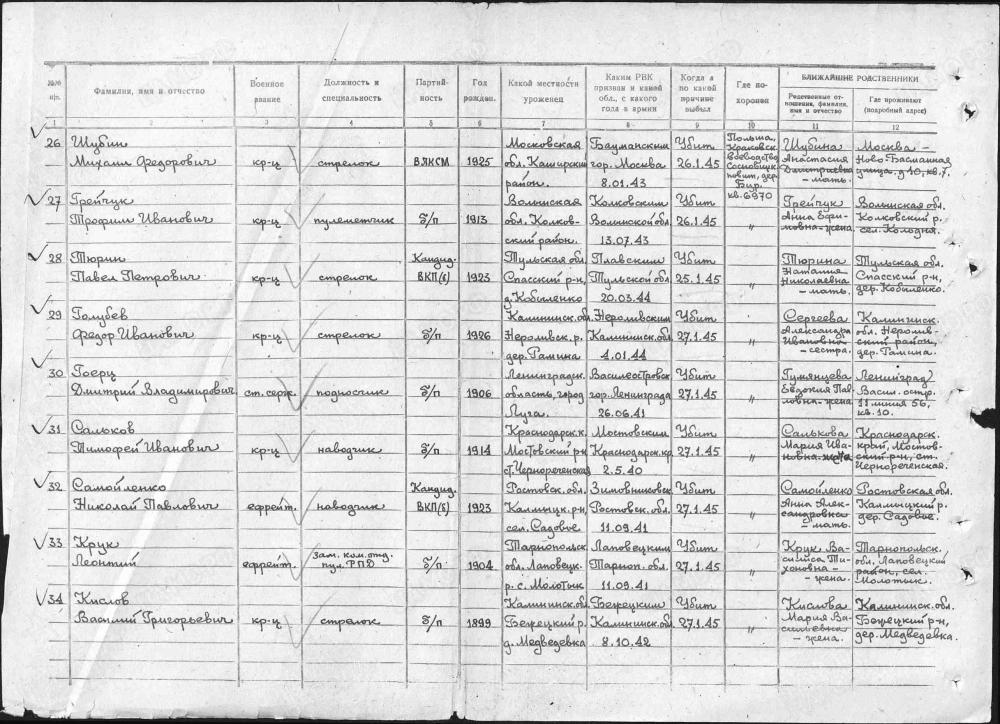 №№ п/п.
Фамилия, имя и отчество
Военное звание
Должность и специальность
Партийность
Год рожден.
Какой местности уроженец
Каким РВК призван и какой обл., с какого года в армии
Когда и по какой причине выбыл
Где похоронен
БЛИЖАЙШИЕ РОДСТВЕННИКИ
Родственные отношения, фамилия, имя и отчество
Где проживают (подробный адрес)
1 2 3 4 5 6 7 8 9 10 11 12
26 Шубин Московская Бауманским Убит Польша, Шубина Москва –
Михаил Федорович кр-ц стрелок ВЛКСМ 1925 обл. Каширский гор. Москва 26.1.45 Краковск. воеводство Анастасия Ново-Басманная
район. 8.01.43 повит, дер. Дмитриевна – мать. улица, д 10, кв. 7.
Бир.
кв. 6970
27 Грейчук Волынская Колковским Убит Грейчук Волынская обл.
Трофим Иванович кр-ц пулеметчик б/п 1913 обл. Колков- Волынской обл 26.1.45 " Анна Ефи- Колковский р.
ский район. 13.07.43 мовна-жена. сел. Колодня.
28 Тюрин Кандид. Тульская обл. Плавским Убит Тюрина Тульская обл.
Павел Петрович кр-ц стрелок ВКП(б) 1923 Спасский р-н, Тульской обл 25.1.45 " Наталия Спасский р-н,
д. Кобыленко 20.03.44 Николаевна – мать. дер. Кобыленко.
29 Голубев Калининск. обл. Нероливским Убит Сергеева Калининск.
Федор Иванович кр-ц стрелок б/п 1926 Нероливск. р. Калининск. обл 27.1.45 " Александра обл. Неролив-
дер. Гамина 4.01.44 Ивановна – сестра. ский район, дер. Гамина.
30 Гоерц Ленинградск. Василеостровск Убит Гумянцева Ленинград
Дмитрий Владимирович ст. серж. подносчик б/п 1906 область, город гор. Ленинграда 27.1.45 " Евдокия Пав- Васил. остр.
Луга. 26.06.41 ловна-жена 11 линия 56, кв. 10.
31 Сальков Краснодарск. к. Мостовским Убит Салькова Краснодарск.
Тимофей Иванович кр-ц наводчик б/п 1914 Мостовский р-н Краснодарск. кр. 27.1.45 " Мария Ива- край, Мостов-
ст. Чернореченская 2.5.40 новна-жена ский р-н, ст. Чернореченская.
32 Самойленко Кандид. Ростовск. обл. Зимовниковск. Убит Самойленко Ростовская обл.
Николай Павлович ефрейт. наводчик ВКП(б) 1923 Калмыцк. р-н, Ростовск. обл. 27.1.45 " Анна Алек- Калмыцкий р.
сел. Садовое 11.09.41 сандровна – мать. дер. Садовое.
33 Крук зам. ком. отд. Тарнопольск. Лаповецким Убит Крук Ва- Тарнопольск.
Леонтий ефрейт. пул. РПД б/п 1904 обл. Лаповецк. Тарноп. обл. 27.1.45 " силиса Ти- обл. Лаповецкий
р. с. Молотык 11.09.41 хоновна – жена. район, сел. Молотык.
34 Кислов Калининск. обл. Бежецким Убит Кислова Калининск. обл.
Василий Григорьевич кр-ц стрелок б/п 1899 Бежецкий р. Калининск. обл. 27.1.45 " Мария Ва- Бежецкий р-н,
д. Медведевка 8.10.42 сильевна – жена. дер. Медведевка.